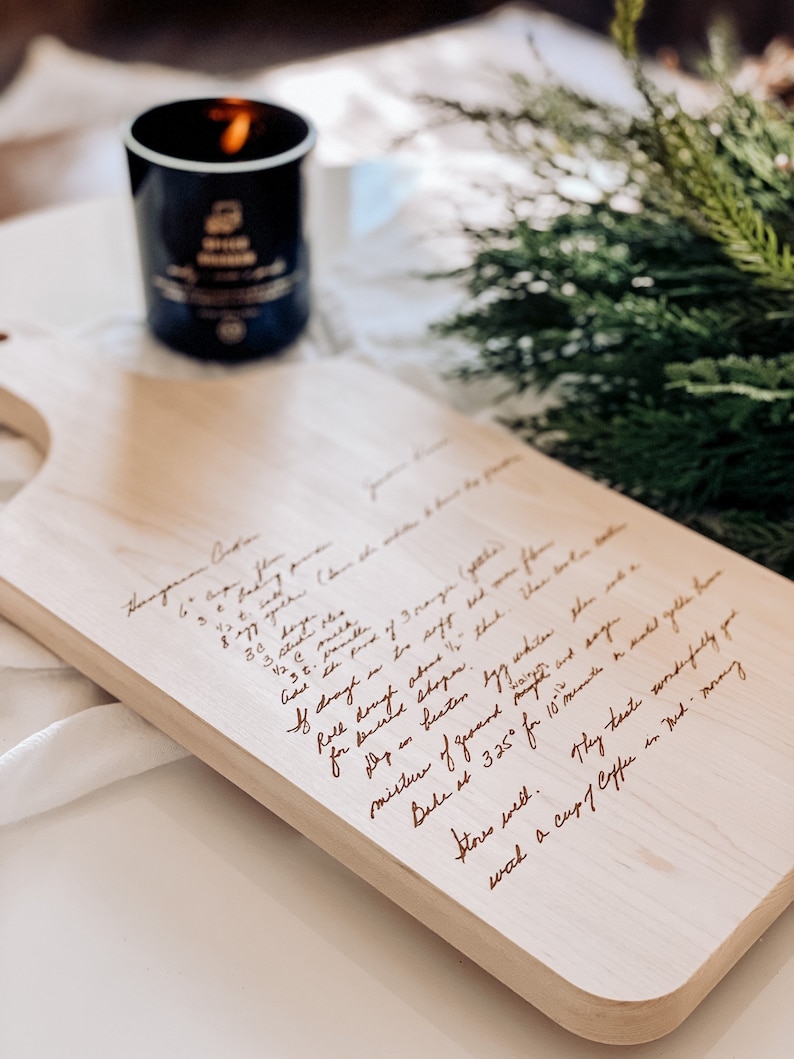 Hungarian Cookies
6+ cups flour
3 t baking powder
1/2 t. salt
8 egg yolks (Save the whites to
3 C sugar
3 sticks oleo
1/2 C milk
3 t. vanilla
add the rind of 3 oranges (grated)
If dough is too soft add more flour
Roll dough about 1/2" thick. Use cookie cutter
for desired shapes.
Dip in beaten egg whites then into a
mixture of ground walnuts and sugar
Bake at 325° for 10 minutes or until golden brown
Stores well. They taste wonderfully good
with a cup of coffee in mid-morning